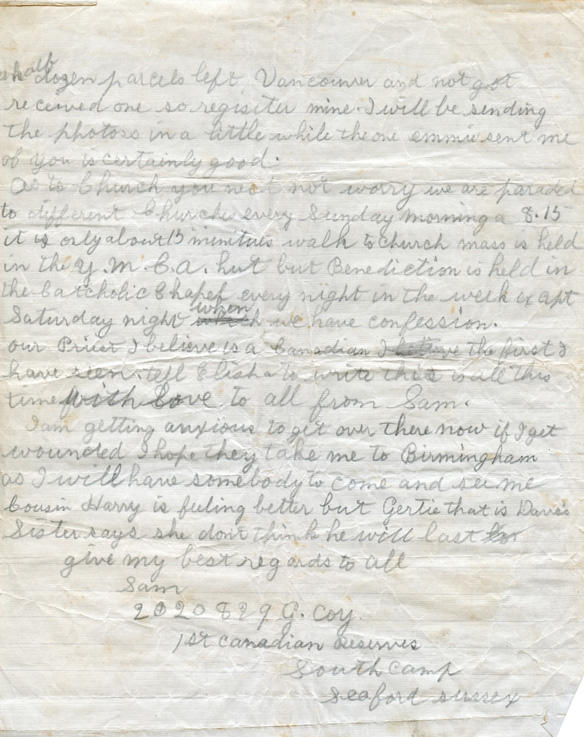 half
dozen parcels left Vancouver and not got
received one so register mine. I will be sending
the photoss in a little while the one emmie sent me
of you is certainly good.
As to Church you need not worry we are paraded
to different Churches every Sunday morning a 8.15
it is only about 15 minitues walk to church mass is held
in the Y.M.C.A. hut but Benediction is held in
the Catcholic Chapel every night in the week exapt
Saturday night when we have confession.
our Priest I believe is a Canadian I the first I
have seen. tell Elisha to write this is all this
time with Love to all from Sam.
I am getting anxious to get over there now if I get
wounded I hope they take me to Birmingham
as I will have somebody to come and see me
Cousin Harry is feeling better but Gertie that is Daves
Sister says she don't think he will last
give my best regards to all
Sam
2020829 G. Coy.
1st Canadian Reserves
South camp
Seaford sussex